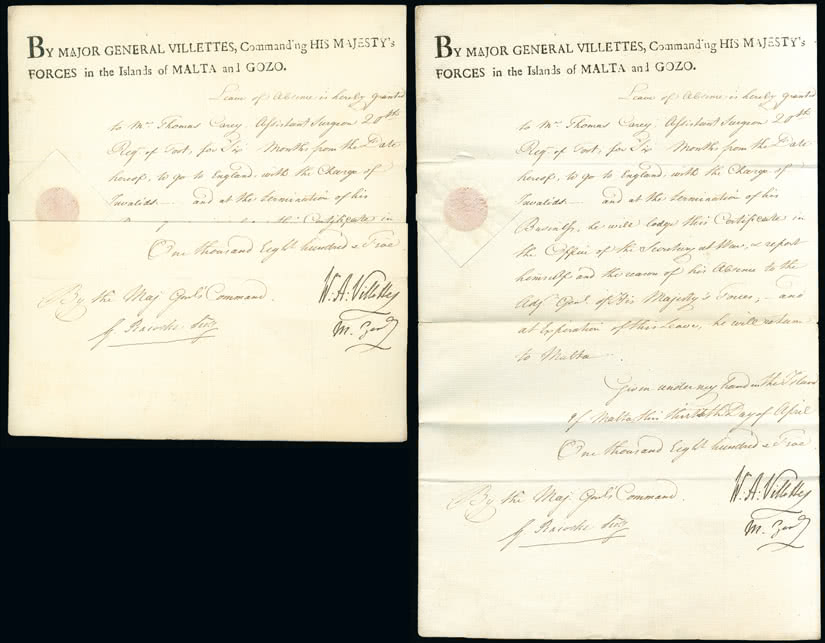 BY MAJOR GENERAL VILLETTES, Commanding HIS MAJESTY's
FORCES in the Islands of MALTA and GOZO.
Leave of Absence is hereby granted
to Mr. Thomas Carey Assistant Surgeon 20th
Regt of Foot, for Six Months from the Date
hereof, to go to England, with the Charge of
Invalids and at the termination of his
this Certificate in
One thousand Eight hundred & Five
By the Maj Genl's Command.
W. A. Villettes
M. Genl
BY MAJOR GENERAL VILLETTES, Commanding HIS MAJESTY's
FORCES in the Islands of MALTA and GOZO.
Leave of Absence is hereby granted
to Mr. Thomas Carey Assistant Surgeon 20th
Regt of Foot, for Six Months from the Date
hereof, to go to England, with the Charge of
Invalids and at the termination of his
Business, he will lodge this Certificate in
the Office of the Secretary at War, & report
himself and the reason of his Absence to the
Adjt Genl of His Majesty's Forces, and
at Expiration of this Leave, he will return
to Malta.
Given under my hand in the Island
of Malta this Day of April
One thousand Eight hundred & Five
By the Maj Genl's Command.
W. A. Villettes
M. Genl